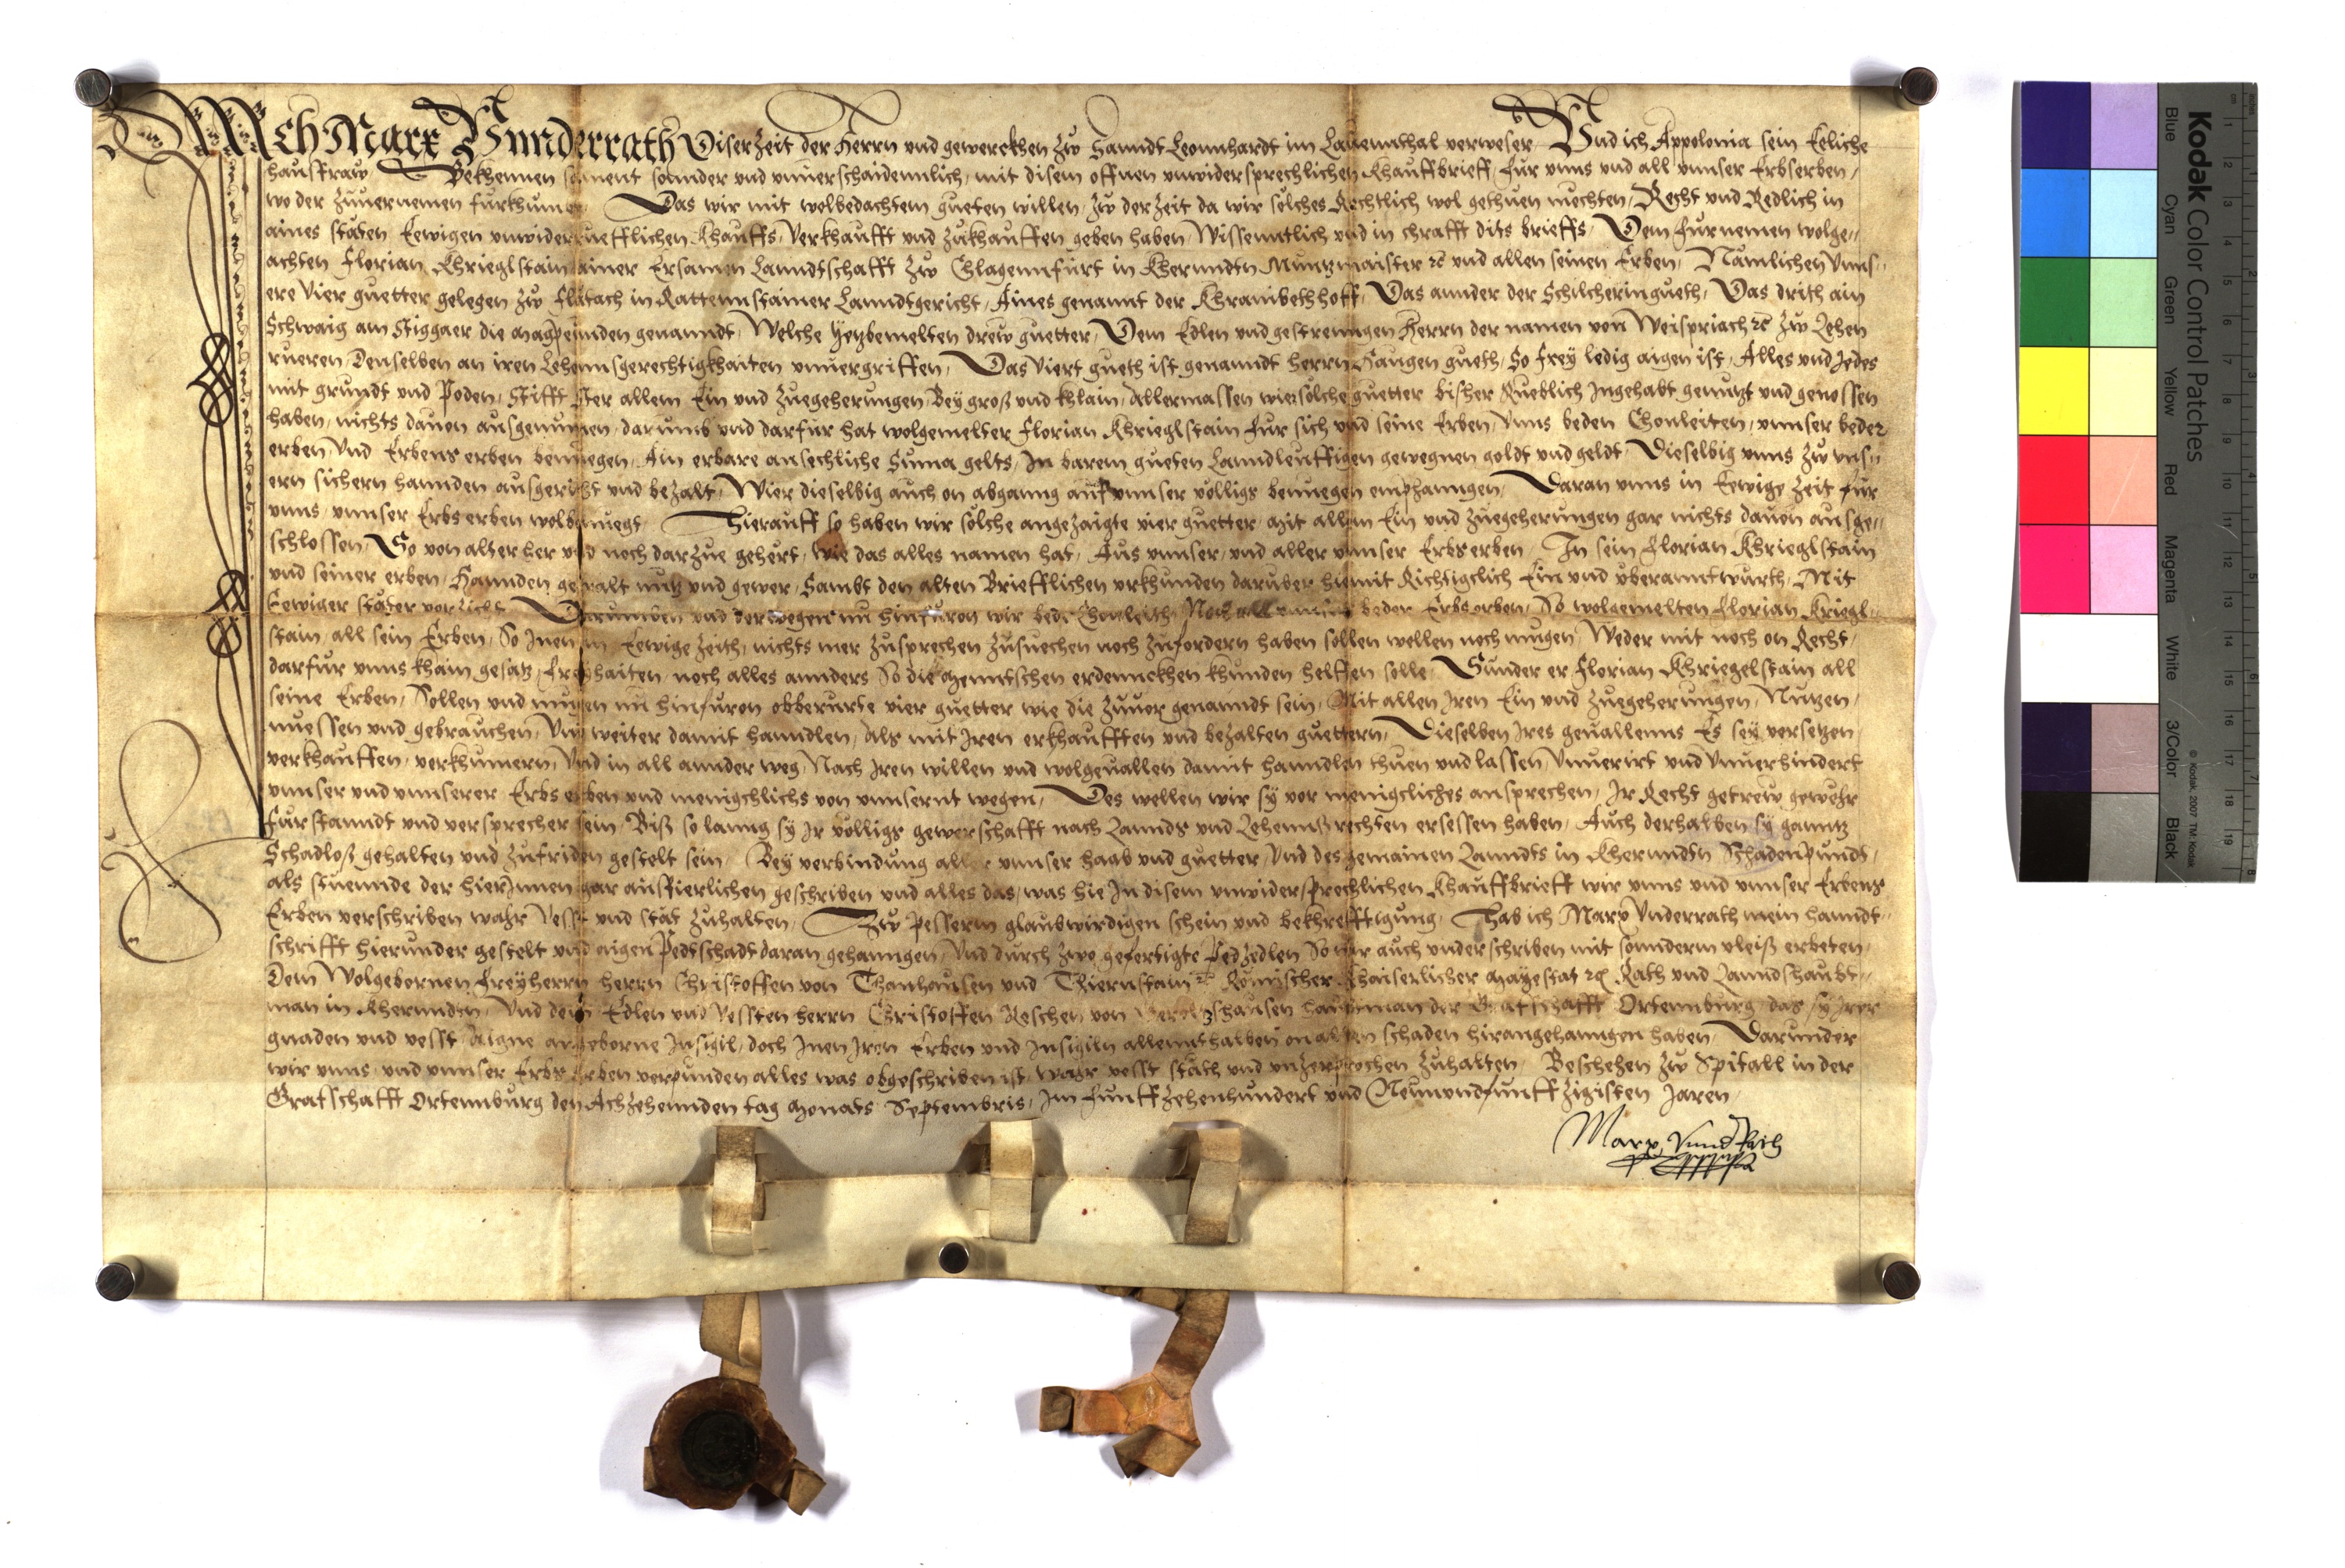 Ich Marx Vunderrath Diser Zeit der Herrn und gewerckhen Zw Sanndt Leonnhardt im Lauennthal verweser Und ich Appolonia sein Eeliche
hausfraw Bekhennen sament sonnder und unuerschaidennlich, mit disem offnen unwidersprechlichen Khauffbrieff, fur unns und all unnser Erbserben,
wo der zuuernemen furkhumen, Das wir mit wolbedachtem gueten willen, Zw der Zeit da wir solches Rechtlich wol gethuen mechten, Recht und Redlich in
aines stäten Eewigen unwiderruefflichen Khauffs, Verkhaufft und Zukhauffen geben haben, Wissenntlich und in chrafft dits brieffs, Dem furnemen wolge,,
achten Florian Khrieglstain ainer Ersamen Lanndtschafft Zw Chlagennfurt in Kherndtn Muntzmaister ꝛc und allen seinen Erben, Nämlichen Unns,,
ere Vier guetter gelegen Zw Flätach in Rattennstainer Lanndtgericht, Aines genannt der Khrambethhoff, Das annder der Schilcheringueth, Das drith ain
Schwaig am Stiggaer die Magpeunden genanndt, Welche yetzbemelten drew guetter, Dem Edlen und gestrenngen Herrn der namen von Weispriach ꝛc Zw Lehen
rueren, Denselben an iren Lehennsgerechtigkhaiten unuergriffen, Das Viert gueth ist genanndt herrn Haugen gueth, So frey ledig aigen ist, Alles und Jedes
mit grundt und Poden, Stifft Ster allem Ein und Zuegeherungen, Bey groß und khlain, Allermassen wie solche guetter bisher Rueblich Ingehabt genutzt und genossen
haben, nichts dauon ausgenumen, darumb und darfur hat wolgemelter Florian Khrieglstain fur sich und seine Erben, Unns beden Chonleiten, unnser beder
erben Und Erbens erben benuegen, Ain erbare ansechliche Suma gelts, In barem gueten Lanndleuffigen gewegnen goldt und geldt, Dieselbig unns Zw uns,,
ern sichern hannden ausgericht und bezalt, Wier dieselbig auch on abganng auf unnser volligs benuegen emphanngen, Daran unns in Eewige Zeit fur
unns, unnser Erbserben wolbenuegt, Hierauff so haben wir solche angezaigte vier guetter, Mit allem Ein und Zuegeherungen gar nichts dauon ausge,,
schlossen, So von alter her und noch darzue gehert, wie das alles namen hat, Aus unnser, und aller unnser Erbserben, In sein Florian Khrieglstain
und seiner erben, Hannden gewalt nutz und gewer, Sambt den alten Briefflichen urkhunden daruber hiemit Richtigclich Ein und uberanntwurth, Mit
Eewiger stäter verzicht, Darumben und derwegen nu hinfuron wir bede Chonleith, Noch all unnser beder Erbserben, So wolgemelten Florian Kriegl,,
stain, all sein Erben, So Inen in Eewige Zeith, nichts mer Zusprechen Zusuechen noch Zufordern haben sollen wellen noch mugen, Weder mit noch on Recht,
darfur unns khain gesatz, freyhaiten noch alles annders So die menntschen erdennckhen khunden helffen solle, Sunder er Florian Khriegelstain all
seine Erben, Sollen und mugen nu hinfuron obberurte vier guetter wie die Zuuor genanndt sein, Mit allen Iren Ein und Zuegeherungen, Nutzen,
nuessen und gebrauchen, Und weiter damit hanndlen, Als mit Iren erkhaufften und bezalten guettern, Dieselben Ires geuallenns Es sey versetzen
verkhauffen, verkhumern, Und in all annder weg, Nach Iren willen und wolgeuallen damit hanndlen thuen und lassen, Unuerirt und Unuerhindert
unnser und unnserer Erbs erben und menigclichs von unnsernt wegen, Des wellen wir sy vor menigcliches ansprechen, Ir Recht getrew gewehr
furstanndt und versprecher sein, Biß so lanng sy Ir volligs gewerschafft nach Lannds und Lehennsrechten ersessen haben, Auch derhalben sy ganntz
Schadloß gehalten und Zufriden gestelt sein, Bey verbindung aller unnser haab und guetter, Und des gemainen Lanndts in Kherndtn Schadenpundt,
als stuennde der hierInnen gar ausfierlichen geschriben und alles das, was hie In disem unwidersprechlichen Khauffbrieff wir unns und unnser Erbens
Erben verschriben wahr Vesst und stät zuhalten, Zw pesserm glaubwirdigen schein und bekhrefftigung, Hab ich Marx Vnderrath mein hanndt,,
schrifft hierunder gestelt und aigen Pedtschadt daran gehanngen, Und durch zwo gefertigte Pedzedlen So wir auch underschriben mit sonnderm vleiß erbeten,
Dem Wolgebornen Freyherrn herrn Christoffen von Thanhausen und Thiernstain ꝛc Römischer Khaiserlicher Mayestat ꝛc Rath und Lanndshaubt,,
man in Kherndtn, Und dem Edlen und Vessten herrn Christoffen Reschen von haubtman der Gratschafft Ortennburg, das sy Irer
gnaden und vesst, Aigne angeborne Insigil, doch Inen Iren Erben und Insigiln allennthalben on allen schaden hirangehanngen haben, Darunder
wir unns, und unnser Erbs Erben verpunden alles was obgeschriben ist, wahr vesst stäth und unzerprochen Zuhalten, Beschehen Zw Spitall in der
Gratschafft Ortennburg den Achzehennden tag Monats Septembris, Im funffzehenhundert und Neunundfunffzigisten Jaren,
Marx Vnndrath
Kodak Color Control Patches
Blue Cyan Green Yellow Red Magenta White 3/Color Black
© Kodak, 2007 TM: Kodak
cm 1 2 3 4 5 6 7 8 9 10 11 12 13 14 15 16 17 18 19
inches 1 2 3 4 5 6 7 8